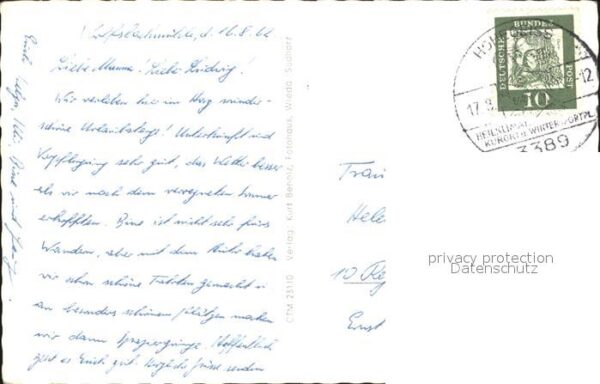 d. 16.8.62
Liebe Mama! Liebe Ludwig!
Wir verleben hier im Harz wunder-
schöne Urlaubstage! Unterkunft und
Verpflegung sehr gut, das Wetter besser
als wir nach dem verregneten Sommer
erhofften. Eine ist nicht sehr fürs
Wandern, aber mit dem Auto haben
wir schon schöne Fahrten gemacht u.
an besonders schönen Plätzen machen
wir dann Spaziergänge. Hoffentlich
geht es Euch gut. Herzliche Grüße senden
Eure
und
CTM 25110 Verlag: Kurt Benolz, Fotohaus, Wieda Südharz
DEUTSCHE BUNDESPOST
10
HOHEGEISS
17.8.
-12
HEILKLIMAT.
KURORT u. WINTERSPORTPL.
3389
Frau
Hele
10
Ernst
privacy protection
Datenschutz